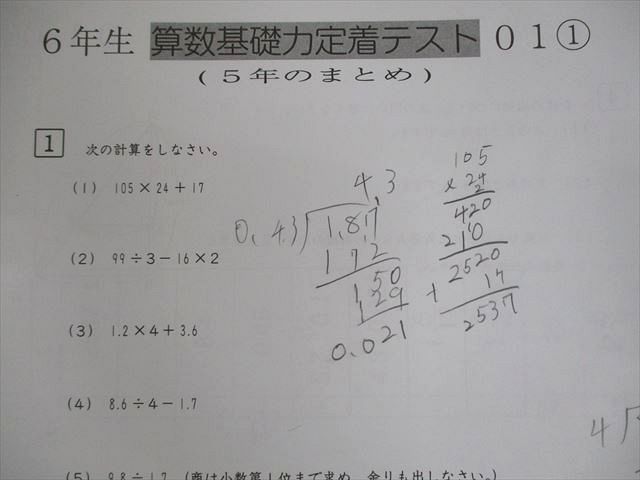 6年生 算数基礎力定着テスト 01①
(5年のまとめ)
1 次の計算をしなさい。
(1) 105×24+17
(2) 99÷3-16×2
(3) 1.2×4+3.6
(4) 8.6÷4-1.7
(5) 9.8÷1.7 (商は小数第1位まで求め、余りも出しなさい。)
4,3
0.43 1,8,7
1 7 2
150
129
0.021
105
×24
420
210
2520
+ 17
2537
4